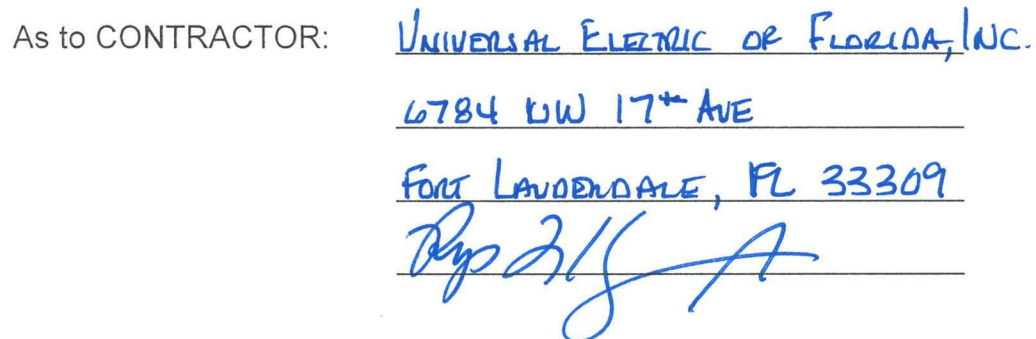 As to CONTRACTOR: UNIVERSAL ELECTRIC OF FLORIDA, INC.
6784 NW 17th AVE
FORT LAUDERDALE, FL 33309